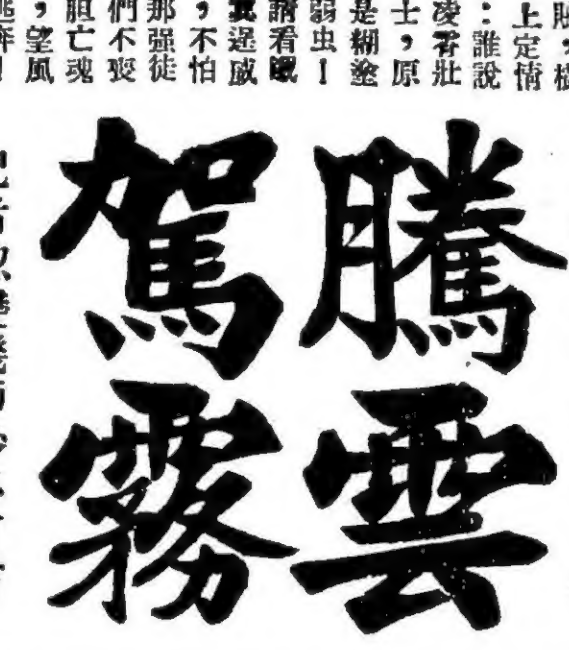 上定情
：誰說
凌霄壯
士，原
是糊塗
弱虫！
請看
逞威
，不怕
那强徒
們不喪
胆亡魂
，望風
騰雲
駕霧